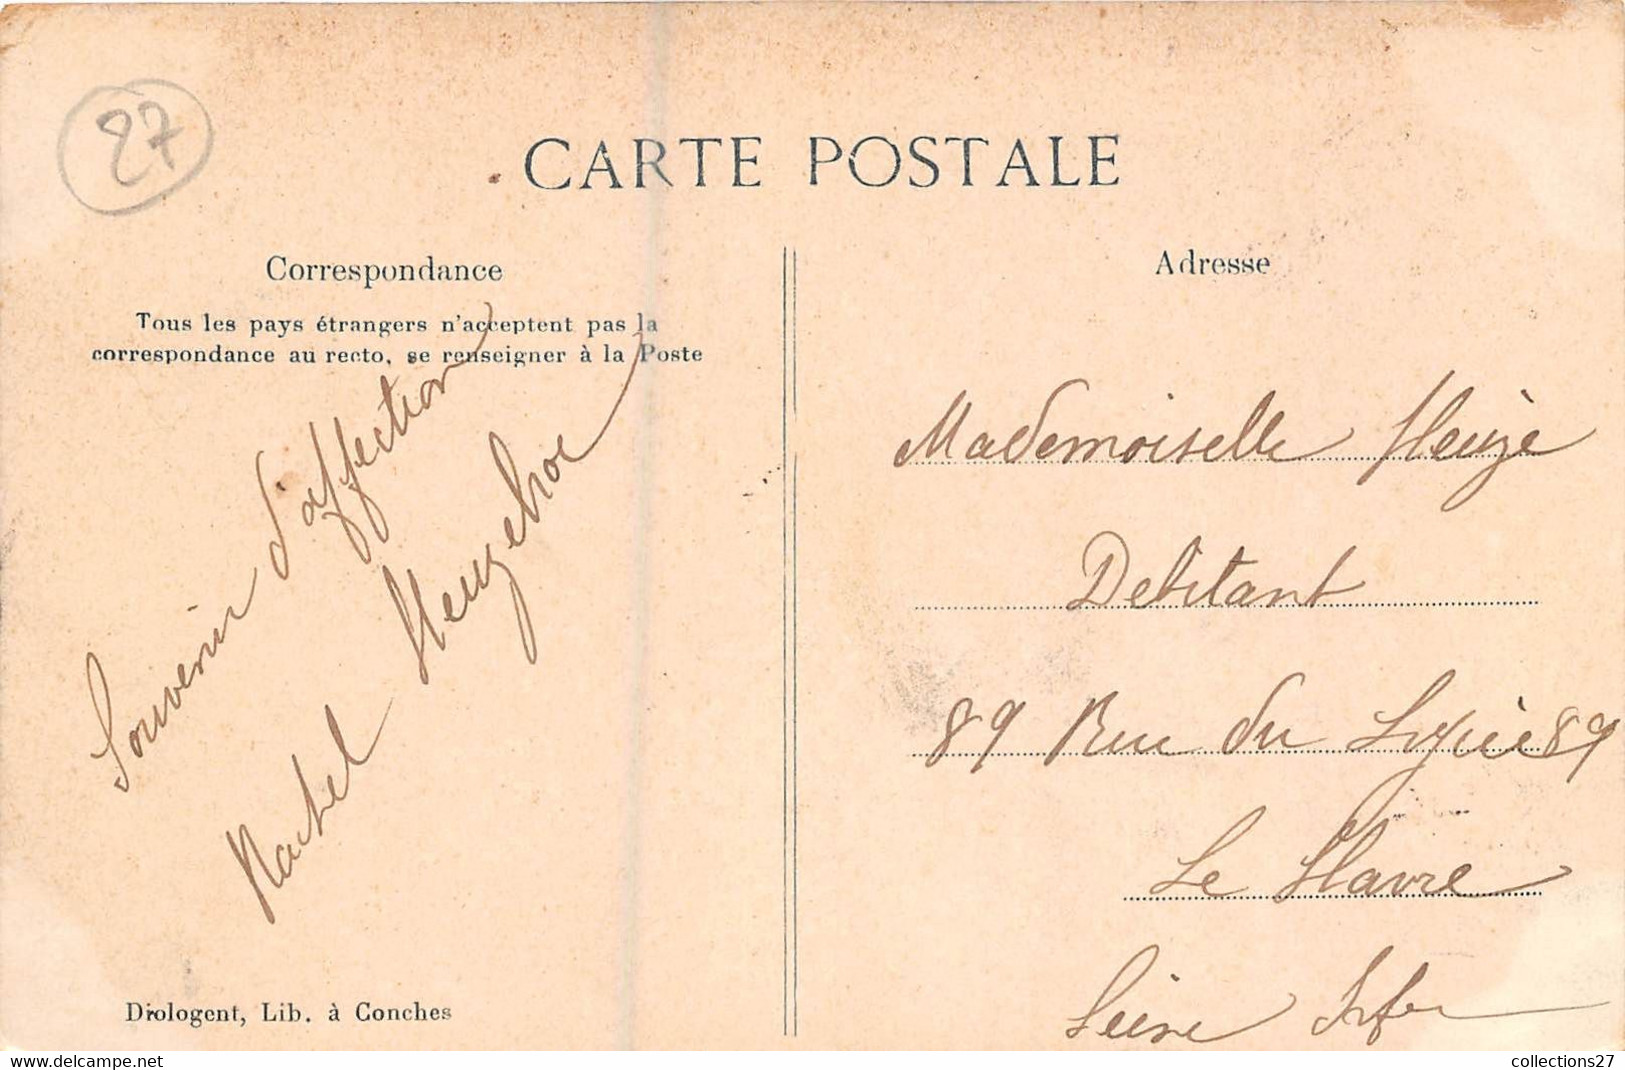 27
CARTE POSTALE
Correspondance
Tous les pays étrangers n'acceptent pas la
correspondance au recto, se renseigner à la Poste
Souvenir d'affection
Rachel Heuzebroc
Diologent, Lib. à Conches
Adresse
Mademoiselle Heuzé
Debitant
89 Rue du Lycée 89
Le Havre
Seine Infre
delcampe.net
collections27